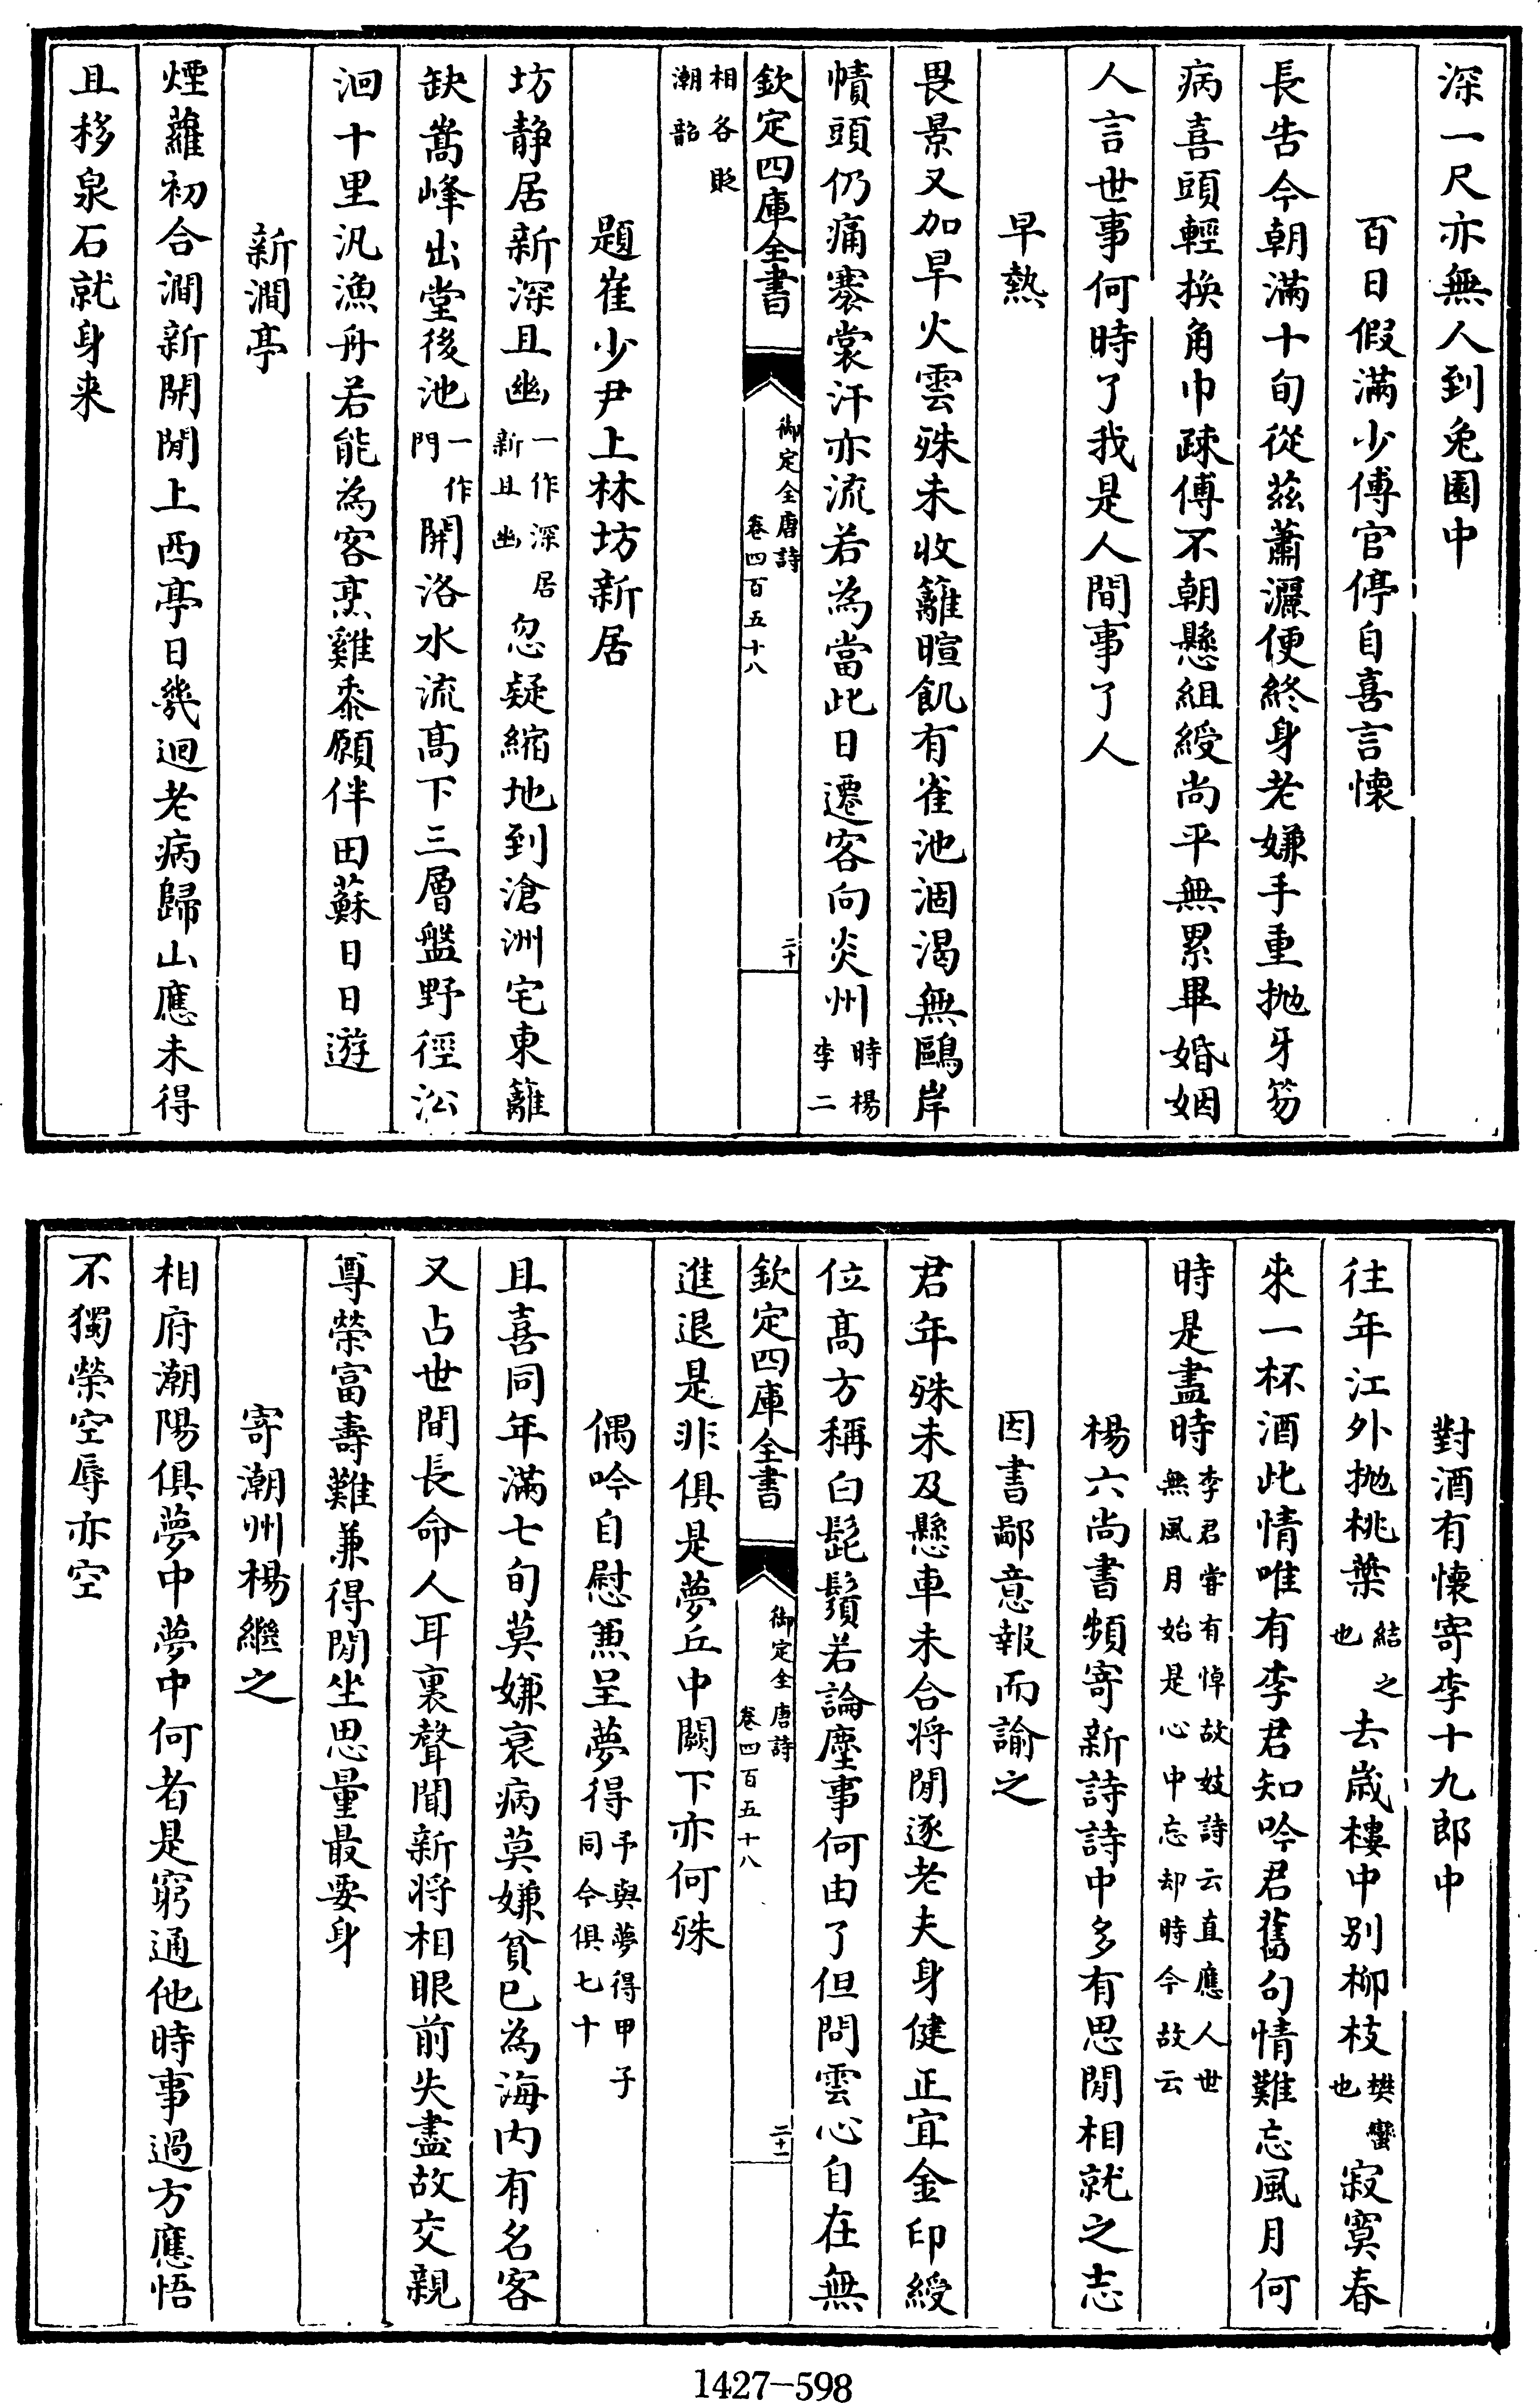 深一尺亦無人到兔園中
百日假滿少傅官停自喜言懷
長告今朝滿十旬從茲蕭灑便終身老嫌手重抛牙笏
病喜頭輕換角巾疎傅不朝懸組綬尚平無累畢婚姻
人言世事何時了我是人間事了人
早熱
畏景又加早火雲殊未收籬暄飢有雀池涸渴無鷗岸
幘頭仍痛褰裳汗亦流若為當此日遷客向炎州時楊李二
欽定四庫全書
御定全唐詩
卷四百五十八
二十
相各貶
潮韶
題崔少尹上林坊新居
坊静居新深且幽一作深居新且幽忽疑縮地到滄洲宅東籬
缺嵩峰出堂後池一作門開洛水流高下三層盤野徑㳂
洄十里汎漁舟若能為客烹雞黍願伴田蘇日日遊
新澗亭
煙蘿初合澗新開閒上西亭日幾迴老病歸山應未得
且移泉石就身来
對酒有懷寄李十九郎中
往年江外抛桃葉結之也去歲樓中别柳枝樊蠻也寂寞春
來一杯酒此情唯有李君知吟君舊句情難忘風月何
時是盡時李君嘗有悼故妓詩云直應人世無風月始是心中忘却時今故云
楊六尚書頻寄新詩詩中多有思閒相就之志
因書鄙意報而諭之
君年殊未及懸車未合将閒逐老夫身健正宜金印綬
位高方稱白髭鬚若論塵事何由了但問雲心自在無
欽定四庫全書
御定全唐詩
卷四百五十八
二十一
進退是非俱是夢丘中闕下亦何殊
偶吟自慰兼呈夢得予與夢得甲子同今俱七十
且喜同年滿七旬莫嫌衰病莫嫌貧已為海内有名客
又占世間長命人耳裏聲聞新将相眼前失盡故交親
尊榮富壽難兼得閒坐思量最要身
寄潮州楊繼之
相府潮陽俱夢中夢中何者是窮通他時事過方應悟
不獨榮空辱亦空
1427-598